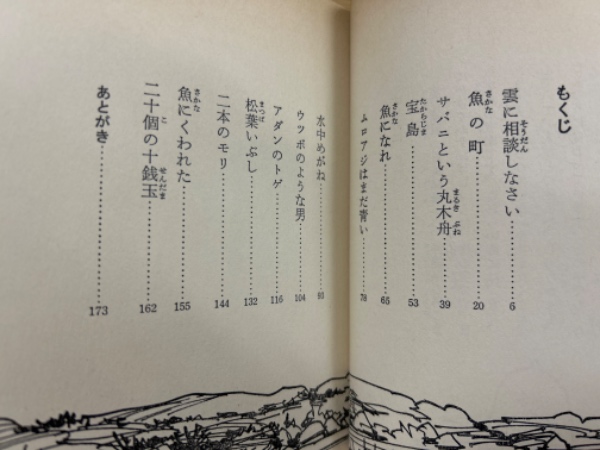 もくじ
雲に相談しなさい……………6
魚の町……………20
サバニという丸木舟……………39
宝島……………53
魚になれ……………65
ムロアジはまだ青い……………78
水中めがね……………93
ウツボのような男……………104
アダンのトゲ……………116
松葉いぶし……………132
二本のモリ……………144
魚にくわれた……………155
二十個の十銭玉……………162
あとがき……………173